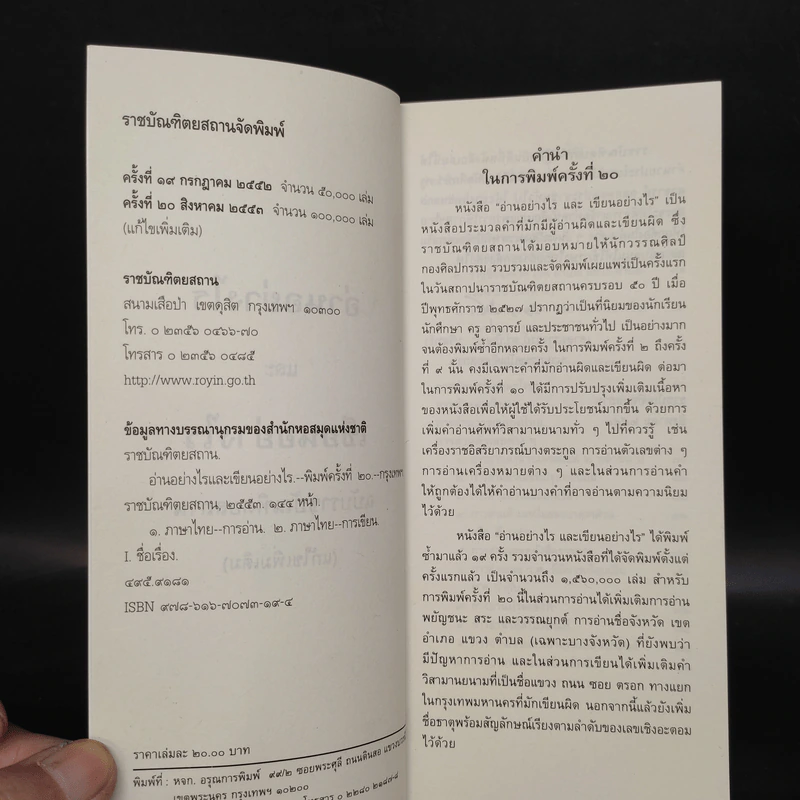 ราชบัณฑิตยสถานจัดพิมพ์
ครั้งที่ ๑๙ กรกฎาคม ๒๕๕๒ จำนวน ๕๐,๐๐๐ เล่ม
ครั้งที่ ๒๐ สิงหาคม ๒๕๕๓ จำนวน ๑๐๐,๐๐๐ เล่ม
(แก้ไขเพิ่มเติม)
ราชบัณฑิตยสถาน
สนามเสือป่า เขตดุสิต กรุงเทพฯ ๑๐๓๐๐
โทร. ๐ ๒๓๕๖ ๐๔๖๖-๗๐
โทรสาร ๐ ๒๓๕๖ ๐๔๘๕
http://www.royin.go.th
ข้อมูลทางบรรณานุกรมของสำนักหอสมุดแห่งชาติ
ราชบัณฑิตยสถาน.
อ่านอย่างไรและเขียนอย่างไร.--พิมพ์ครั้งที่ ๒๐.--กรุงเทพฯ
ราชบัณฑิตยสถาน, ๒๕๕๓. ๑๔๔ หน้า.
๑. ภาษาไทย--การอ่าน. ๒. ภาษาไทย--การเขียน.
I. ชื่อเรื่อง.
๔๙๕.๙๑๘๑
ISBN ๙๗๘-๖๑๖-๗๐๗๓-๑๙-๔
ราคาเล่มละ ๒๐.๐๐ บาท
พิมพ์ที่ : หจก. อรุณการพิมพ์ ๙๙/๒ ซอยพระศุลี ถนนดินสอ แขวง
เขตพระนคร กรุงเทพฯ ๑๐๒๐๐
โทรสาร ๐ ๒๒๘๐ ๒๑๘๗-๘
คำนำ
ในการพิมพ์ครั้งที่ ๒๐
หนังสือ “อ่านอย่างไร และ เขียนอย่างไร” เป็น
หนังสือประมวลคำที่มักมีผู้อ่านผิดและเขียนผิด ซึ่ง
ราชบัณฑิตยสถานได้มอบหมายให้นักวรรณศิลป์
กองศิลปกรรม รวบรวมและจัดพิมพ์เผยแพร่เป็นครั้งแรก
ในวันสถาปนาราชบัณฑิตยสถานครบรอบ ๕๐ ปี เมื่อ
ปีพุทธศักราช ๒๕๒๗ ปรากฏว่าเป็นที่นิยมของนักเรียน
นักศึกษา ครู อาจารย์ และประชาชนทั่วไป เป็นอย่างมาก
จนต้องพิมพ์ซ้ำอีกหลายครั้ง ในการพิมพ์ครั้งที่ ๒ ถึงครั้ง
ที่ ๙ นั้น คงมีเฉพาะคำที่มักอ่านผิดและเขียนผิด ต่อมา
ในการพิมพ์ครั้งที่ ๑๐ ได้มีการปรับปรุงเพิ่มเติมเนื้อหา
ของหนังสือเพื่อให้ผู้ใช้ได้รับประโยชน์มากขึ้น ด้วยการ
เพิ่มคำอ่านศัพท์วิสามานยนามทั่ว ๆ ไปที่ควรรู้ เช่น
เครื่องราชอิสริยาภรณ์บางตระกูล การอ่านตัวเลขต่าง ๆ
การอ่านเครื่องหมายต่าง ๆ และในส่วนการอ่านคำ
ให้ถูกต้องได้ให้คำอ่านบางคำที่อาจอ่านตามความนิยม
ไว้ด้วย
หนังสือ “อ่านอย่างไร และเขียนอย่างไร” ได้พิมพ์
ซ้ำมาแล้ว ๑๙ ครั้ง รวมจำนวนหนังสือที่ได้จัดพิมพ์ตั้งแต่
ครั้งแรกแล้ว เป็นจำนวนถึง ๑,๕๖๐,๐๐๐ เล่ม สำหรับ
การพิมพ์ครั้งที่ ๒๐ นี้ในส่วนการอ่านได้เพิ่มเติมการอ่าน
พยัญชนะ สระ และวรรณยุกต์ การอ่านชื่อจังหวัด เขต
อำเภอ แขวง ตำบล (เฉพาะบางจังหวัด) ที่ยังพบว่า
มีปัญหาการอ่าน และในส่วนการเขียนได้เพิ่มเติมคำ
วิสามานยนามที่เป็นชื่อแขวง ถนน ซอย ตรอก ทางแยก
ในกรุงเทพมหานครที่มักเขียนผิด นอกจากนี้แล้วยังเพิ่ม
ชื่อธาตุพร้อมสัญลักษณ์เรียงตามลำดับของเลขเชิงอะตอม
ไว้ด้วย